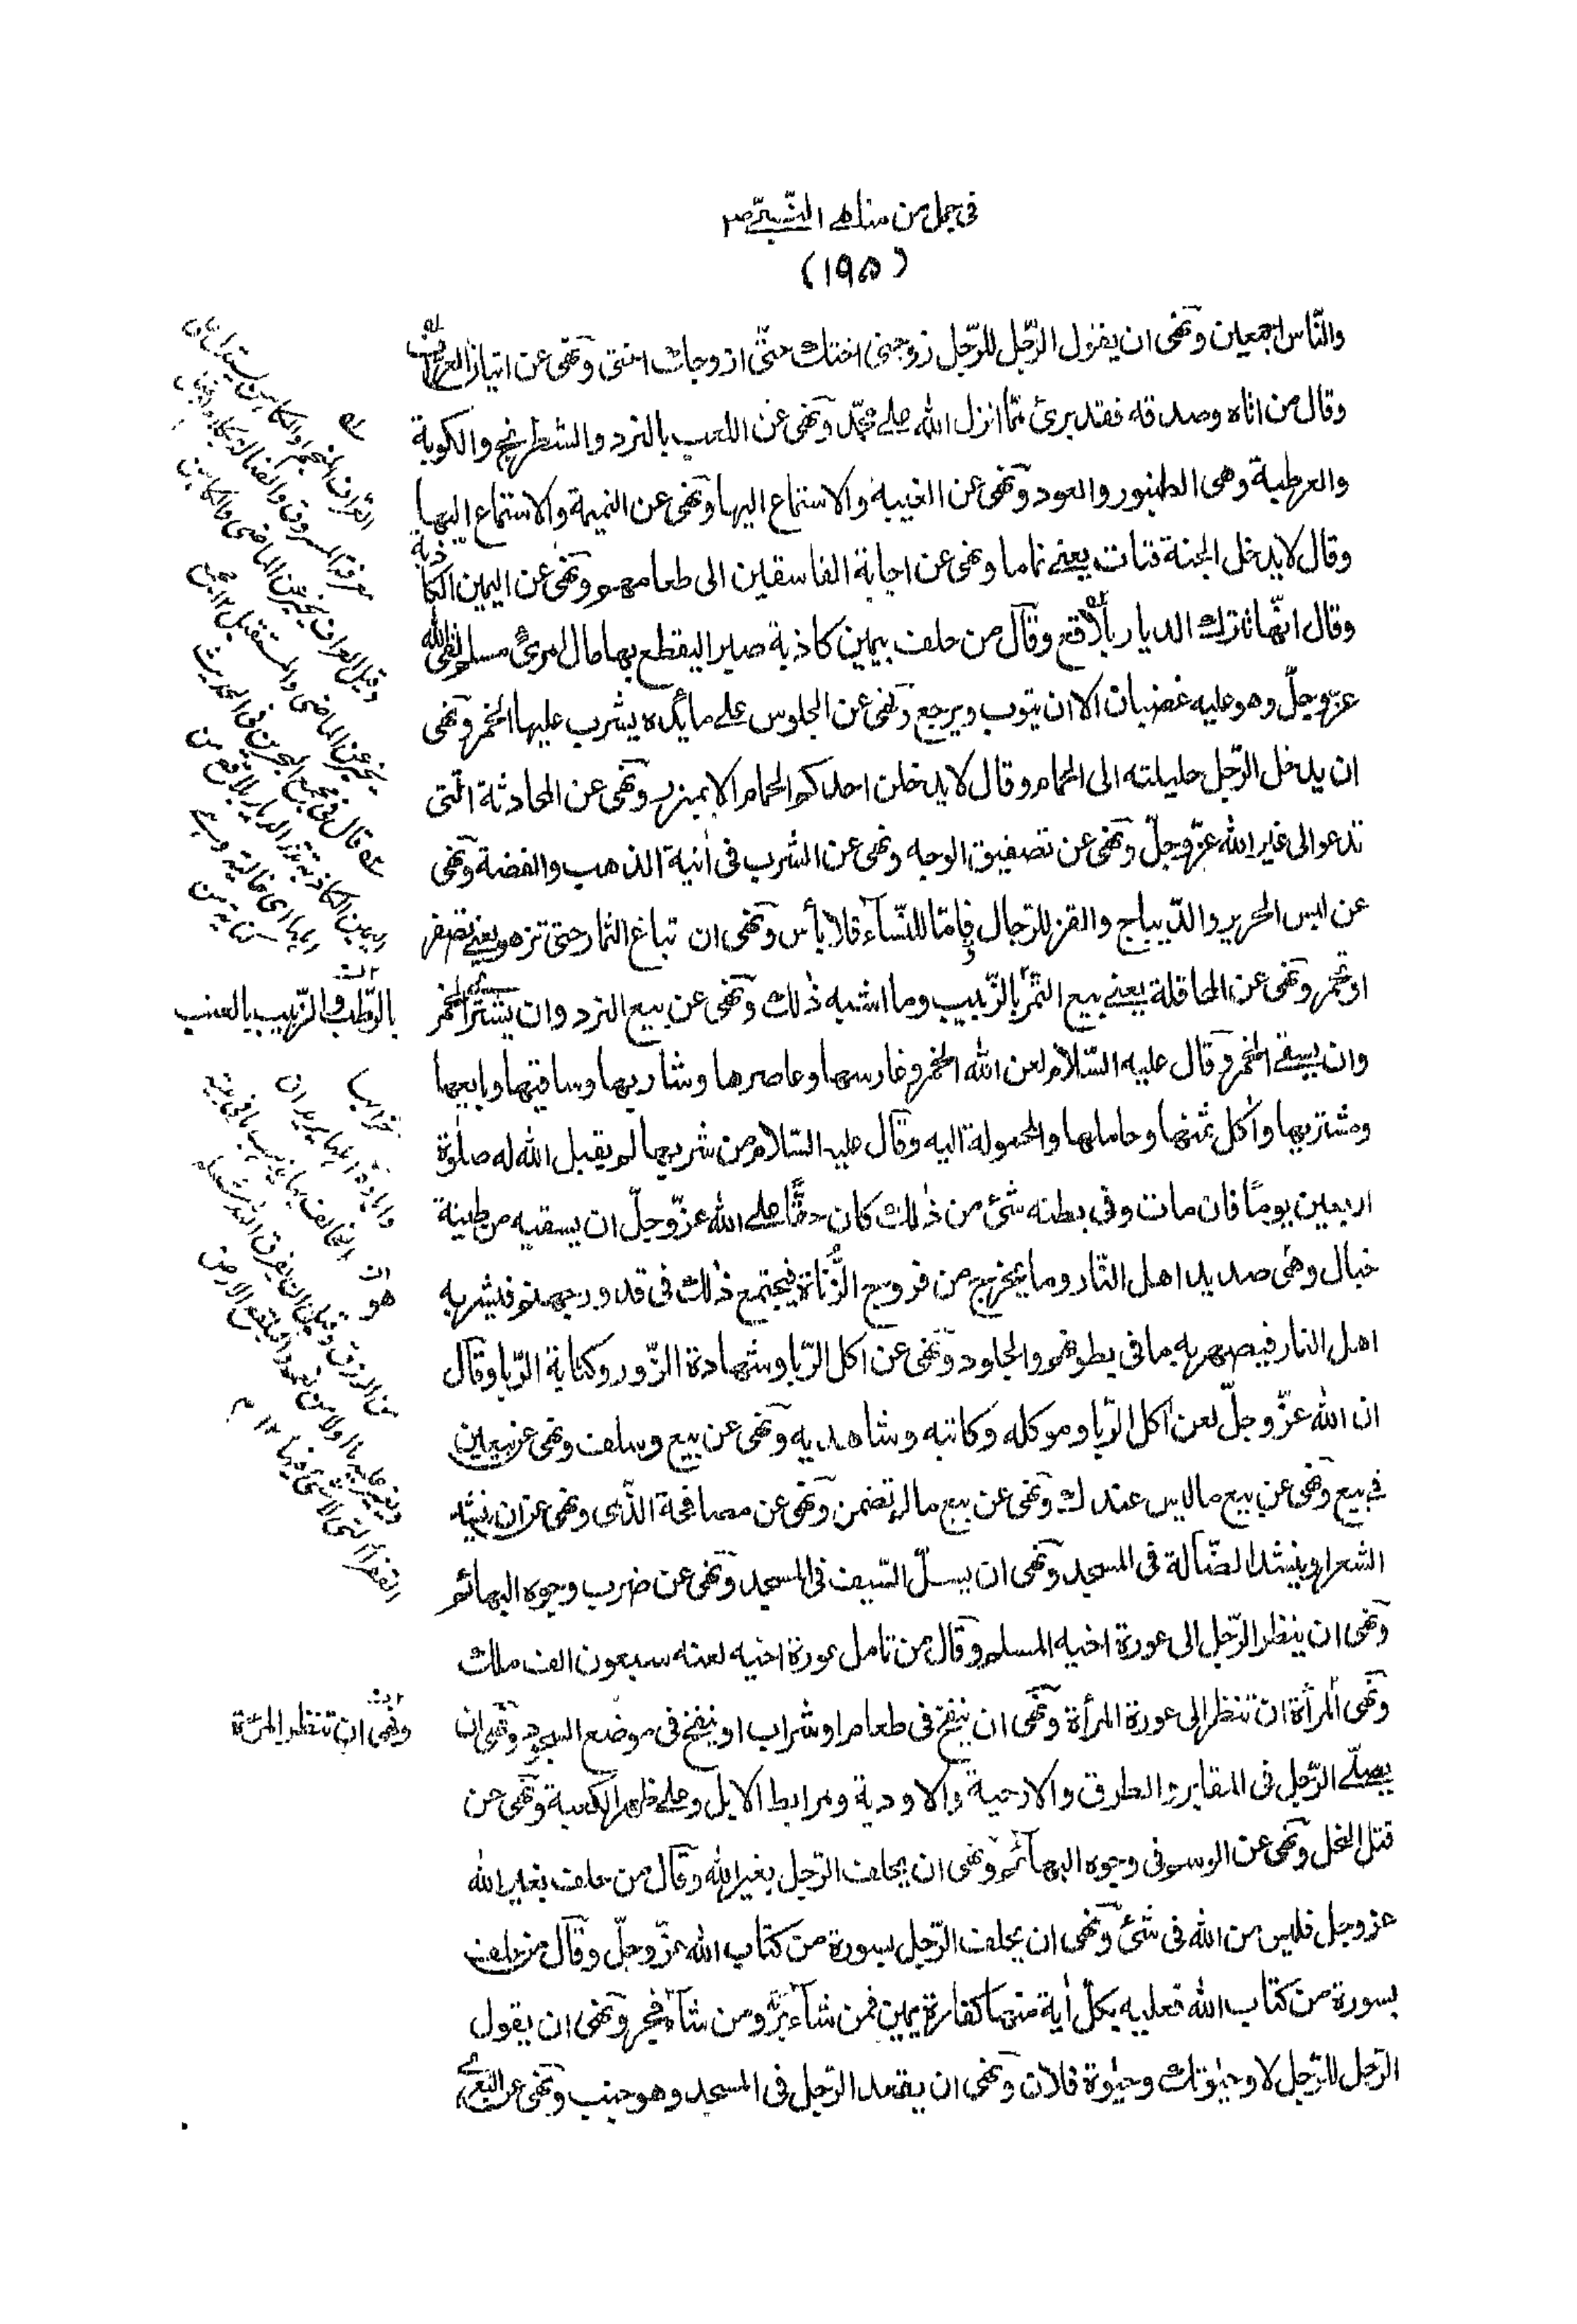 في جمل من مناهي النبي ص
(١٩٥)
والنّاس اجمعين ونهى ان يقول الرّجل للرّجل زوجني اختك حتّى ازوجك اختي ونهى عن اتيان العراف
وقال من اتاه وصدقه فقد برئ ممّا انزل الله على محمّد ونهى عن اللعب بالنرد والشطرنج والكوبة
والعرطبة وهى الطنبور والعود ونهى عن الغيبة والاستماع اليها ونهى عن النميمة والاستماع اليها
وقال لا يدخل الجنة قتات يعني نماما ونهى عن اجابة الفاسقين الى طعامهم ونهى عن اليمين الكاذبة
وقال انّها تترك الديار بلاقع وقال من حلف بيمين كاذبة صبرا ليقطع بها مال امرئ مسلم لقى الله
عزّ وجلّ وهو عليه غضبان الا ان يتوب ويرجع ونهى عن الجلوس على مائدة يشرب عليها الخمر ونهى
ان يدخل الرّجل حليلته الى الحمام وقال لا يدخلن احدكم الحمام الا بميزر ونهى عن المحادثة الّتي
تدعو الى غير الله عزّ وجلّ ونهى عن تصفيق الوجه ونهى عن الشرب في آنية الذهب والفضة ونهى
عن لبس الحرير والدّيباج والقز للرّجال فامّا للنّساء فلا بأس ونهى ان تباع الثمار حتى تزهو يعني تصفر
او تحمر ونهى عن المحاقلة يعني بيع التمر بالزّبيب وما اشبه ذلك ونهى عن بيع النرد وان يشترى الخمر
بالرّطب والزّبيب بالعنب
وان يسقى الخمر وقال عليه السّلام لعن الله الخمر وغارسها وعاصرها وشاربها وساقيها وبايعها
ومشتريها وآكل ثمنها وحاملها والمحمولة اليه وقال عليه السّلام من شربها لم يقبل الله له صلوة
اربعين يومًا فان مات وفي بطنه شئ من ذلك كان حقًّا على الله عزّ وجلّ ان يسقيه من طينة
خبال وهى صديد اهل النّار وما يخرج من فروج الزّناة فيجتمع ذلك في قدور جهنم فيشربه
اهل النار فيصهر به ما في بطونهم والجلود ونهى عن اكل الرّبا وشهادة الزّور وكتابة الرّبا وقال
ان الله عزّ وجلّ لعن آكل الرّبا وموكله وكاتبه وشاهديه ونهى عن بيع وسلف ونهى عن بيعين
في بيع ونهى عن بيع ما ليس عندك ونهى عن بيع ما لم تضمن ونهى عن مصافحة الذّمى ونهى عن ان ينشد
الشعر او ينشد الضّالة في المسجد ونهى ان يسلّ السّيف في المسجد ونهى عن ضرب وجوه البهائم
ونهى ان ينظر الرّجل الى عورة اخيه المسلم وقال من تامل عورة اخيه لعنه سبعون الف ملك
ونهى المرأة ان تنظر الى عورة المرأة ونهى ان ينفخ في طعام او شراب او ينفخ في موضع السجود ونهى ان
ونهى ان تنظر المرئة
يصلّي الرّجل في المقابر والطرق والارحية والاودية ومرابط الابل وعلى ظهر الكعبة ونهى عن
قتل النحل ونهى عن الوسم في وجوه البهائم ونهى ان يحلف الرّجل بغير الله وقال من حلف بغير الله
عز وجل فليس من الله في شئ ونهى ان يحلف الرّجل بسورة من كتاب الله عزّ وجلّ وقال من حلف
بسورة من كتاب الله فعليه بكلّ آية منها كفارة يمين فمن شاء برّ ومن شاء فجر ونهى ان يقول
الرّجل للرّجل لا وحيوتك وحيوة فلان ونهى ان يقعد الرّجل في المسجد وهو جنب ونهى عن التعري